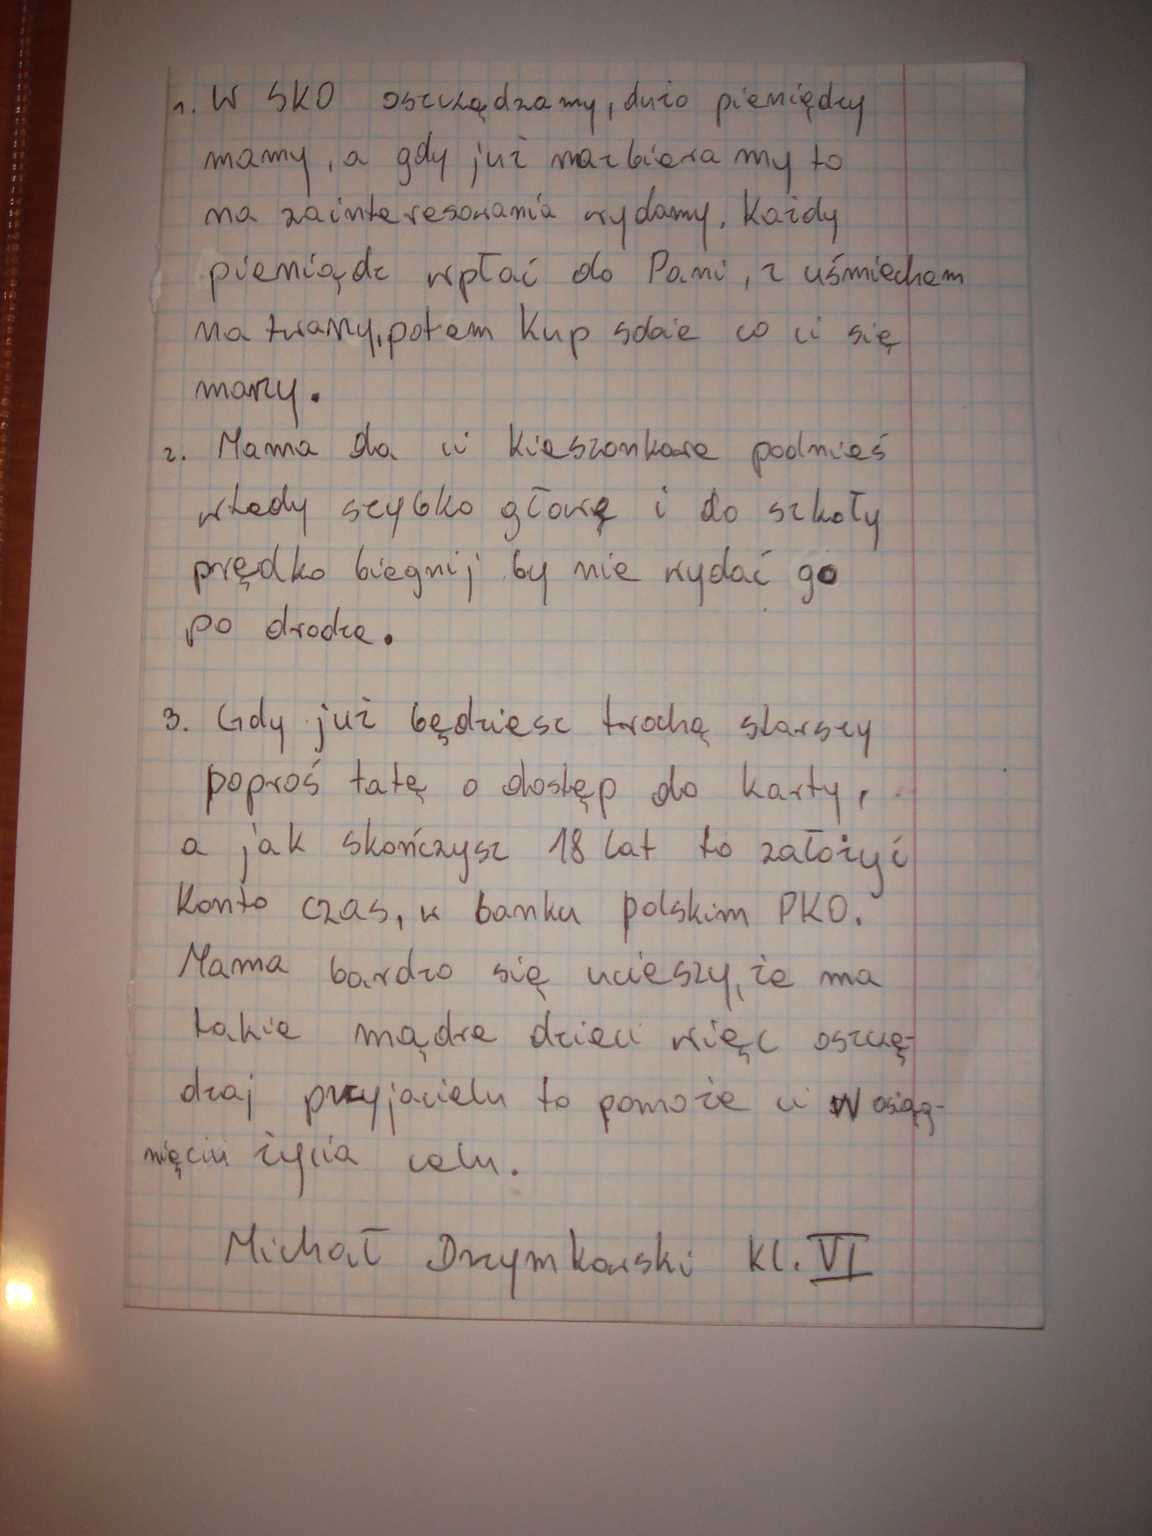 1. W SKO oszczędzamy, dużo pieniędzy
mamy, a gdy już nazbieramy to
na zainteresowania wydamy. Każdy
pieniądz wpłać do Pani, z uśmiechem
na twarzy, potem kup sobie co ci się
marzy.
2. Mama da ci kieszonkowe podnieś
wtedy szybko głowę i do szkoły
prędko biegnij by nie wydać go
po drodze.
3. Gdy już będziesz trochę starszy
poproś tatę o dostęp do karty,
a jak skończysz 18 lat to założyć
konto czas, w banku polskim PKO.
Mama bardzo się ucieszy, że ma
takie mądre dzieci więc oszczę-
dzaj przyjacielu to pomoże ci w osiąg-
nięciu życia celu.
Michał Drzymkowski kl. VI